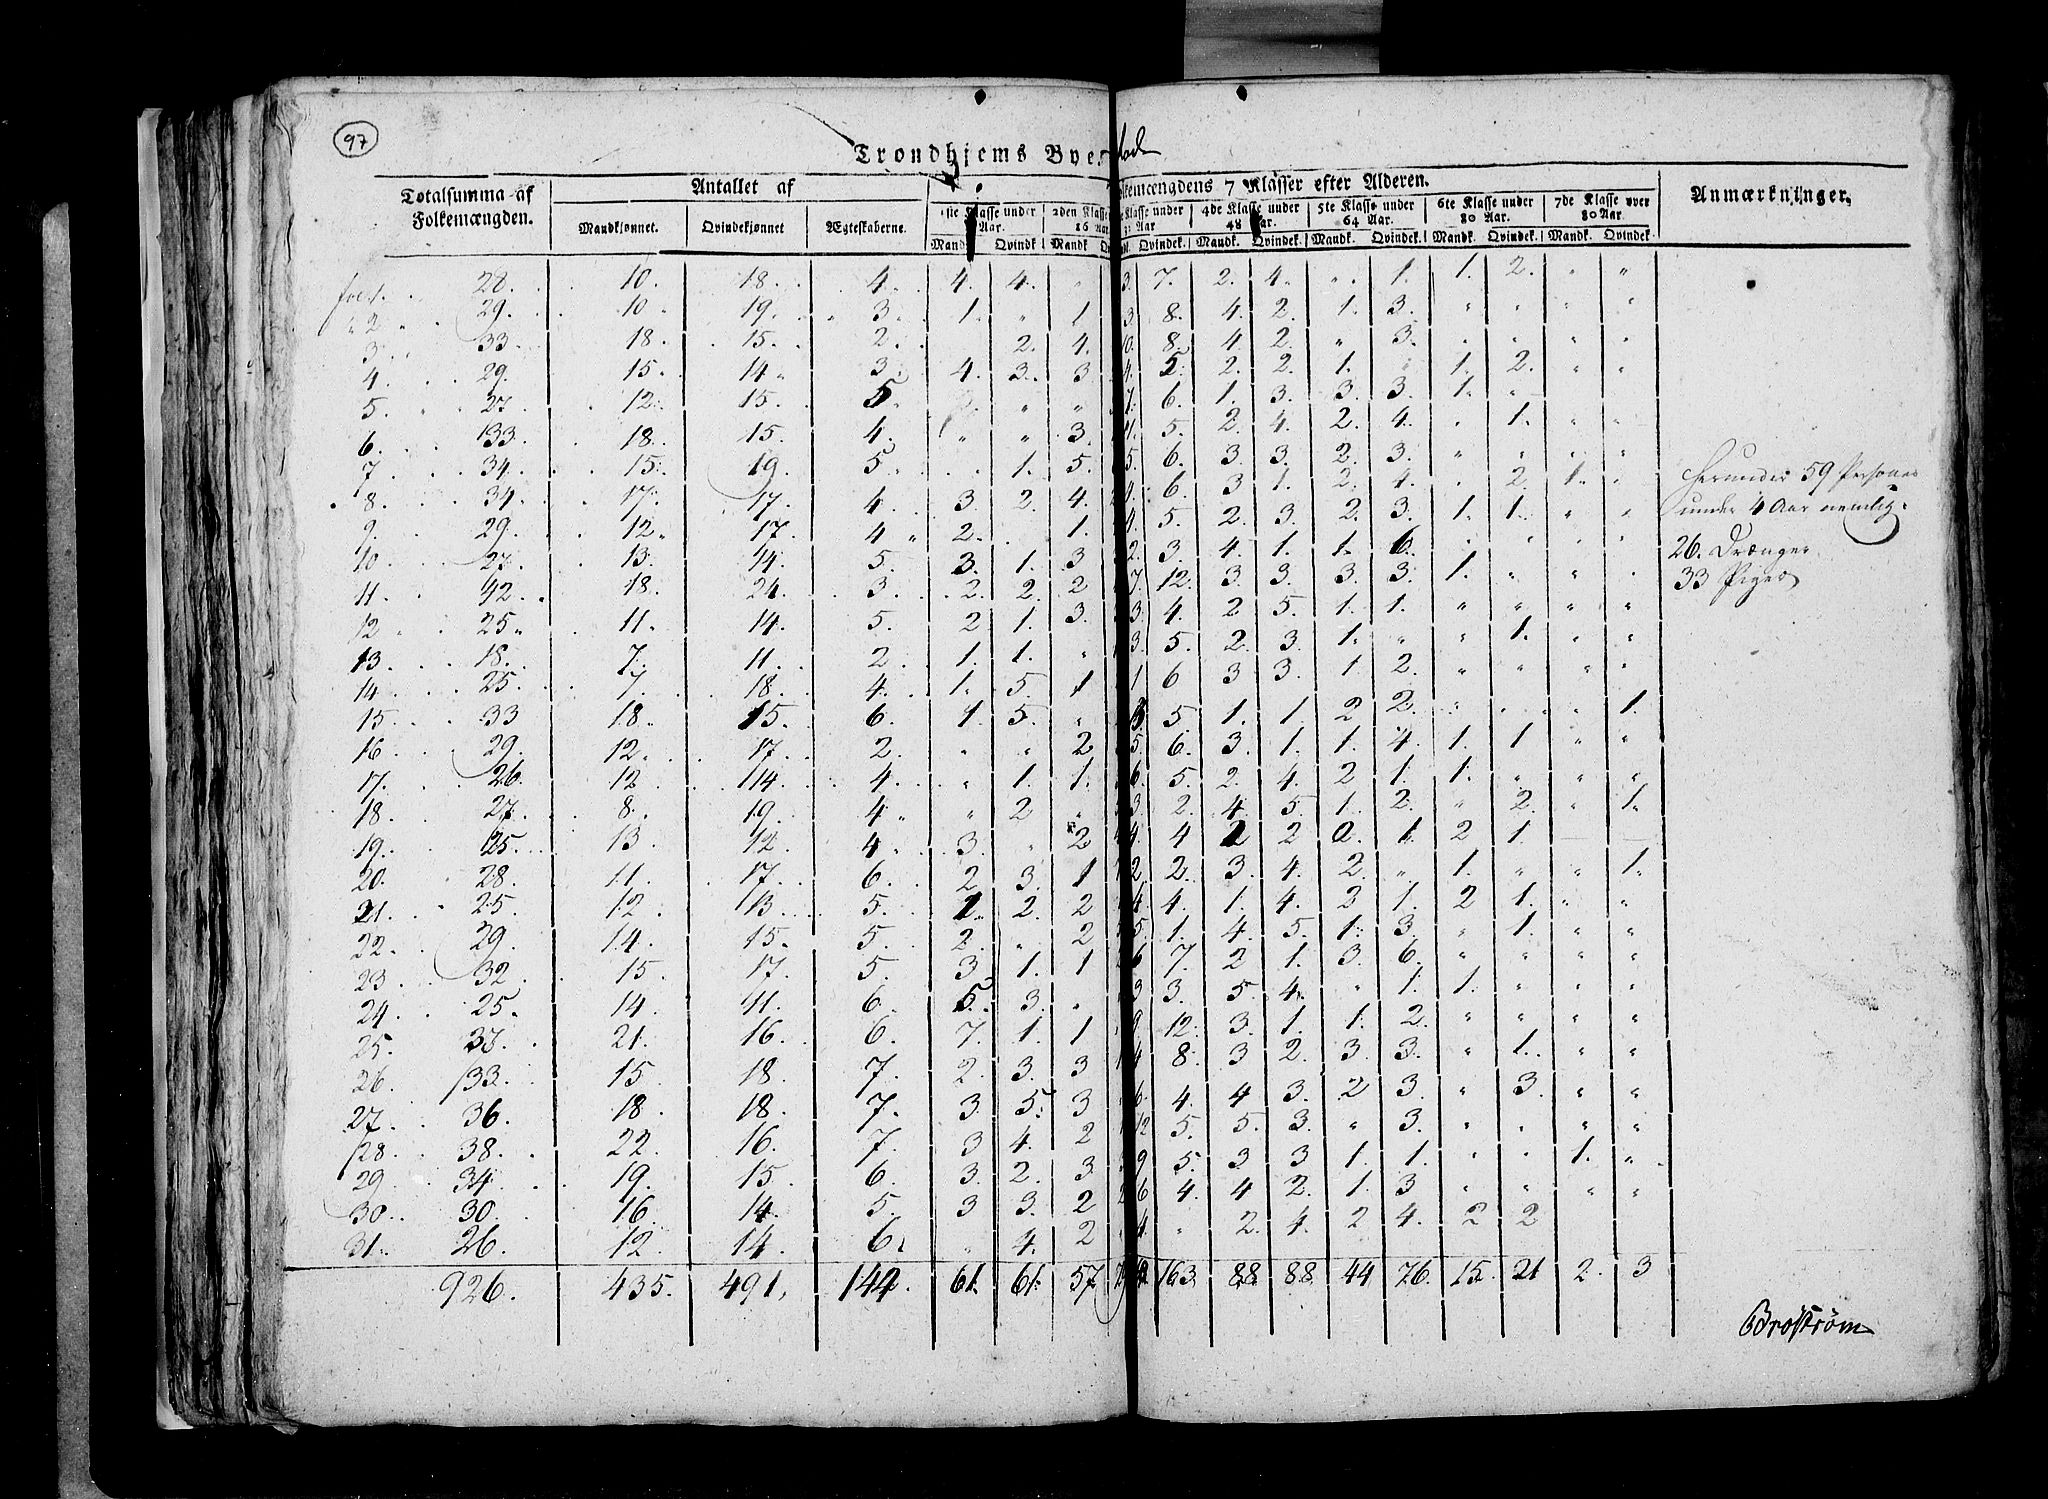 97
Trondhjems Bye
Totalsumma af Folkemængden. Antallet af Folkemængdens 7 Klasser efter Alderen. Anmærkninger.
Mandkjønnet. Qvindekjønnet Ægteskaberne. 1ste Klasse under Aar. 2den Klasse 16 Aar Klasse under 32 Aar 4de Klasse under 48 Aar. 5te Klasse under 64 Aar. 6te Klasse under 80 Aar. 7de Klasse over 80 Aar
Mandk Qvindk Mandk Qvindek. Mandk. Qvindek. Mandk. Qvindek. Mandk. Qvindek. Mandk. Qvindek
fol 1. 28. 10. 18. 4. 4. 4. " 3. 7. 2. 4. " 1. 1. 2. " "
" 2 " 29. 10 19. 3. 1. " 1 3. 8. 4. 2. 1. 3. " " " "
3. 33. 18. 15. 2. 2. 4. 10. 8. 4. 2. " 3. " " " "
4. 29. 15. 14 3. 4. 3. 3 4. 5. 2. 2. 1. " 1. 2. " "
5. 27. 12. 15. 5. " " 7. 6. 1. 3. 3. 3. 1. "
6. 33. 18. 15. 4. " " 3. 11. 5. 2. 4. 2. 4. " 1. " "
7. 34. 15. 19. 5. 1. 5. 5. 6. 3. 3. 2. 3. " " " "
8. 34. 17. 17. 4. 3. 2. 4. 4. 6. 3 1. 2. 4. " 2. 1. "
9. 29. 12. 17. 4 2. 1. 4. 5. 2. 3. 2. 3. 1. 1. " "
10 27. 13. 14. 5. 3. 1. 3 2. 3. 4. 1. 1. 6. " " " "
11. 42. 18. 24. 3. 2. 2. 2 7. 12. 3. 3. 3. 3. 1. " "
12 25. 11. 14. 5. 2 1. 3. 3. 4. 2 5. 1. 1. " " " "
13. 18. 7. 11. 2 1. 1. " 3 5. 2. 3. 1. " " 1. " "
14. 25. 7. 18. 4. 1. 5. 1 1 6 3 3. 1 2. " " " "
15. 33 18. 15. 6. 4. 5. " 5 1. 1. 2 2. " 1.
16 29. 12. 17. 2. " " 2 5. 6. 3. 1. 1. 4. 1. 1 " "
17. 26. 12 14. 4. " 1. 1. 6. 5. 2. 4. 2 1. 1. " " "
18. 27. 8. 19. 4 " 2 " 3. 2. 4. 5. 1. 2. " 2. " 1.
19. 25. 13. 12. 4. 3. " 2 4. 4 2 2 1. 2 1.
20. 28. 11. 17. 6. 2 3. 1 2. 2. 3. 4. 2. " 1. " " 1.
21. 25. 12. 13. 5. 1. 2. 2 4 4. 1. 4. 2 1. 2 1. " "
22. 29. 14. 15. 5. 2. " 2 5. 1. 4. 5. 1. 3. " 1. " "
23. 32. 15. 17. 5. 3. 1. 1 6 7. 2 1. 3. 6. " " " "
24. 25. 14. 11. 6. 5. 3. " 3 3. 5. 4. " 1. 1. " " "
25. 37. 21. 16. 6. 7. 1. 1 9 12. 3. 1. 1. 2. " " " "
26. 33. 15. 18. 7. 2. 3. 3 4 8. 3 2. 3. 3. " 1. " "
27. 36. 18. 18. 7. 3. 5. 3 6. 4. 4 3. 2 3. " 3. " "
28. 38. 22. 16. 7. 3 4. 2 12 5. 5. 3. " 3. " " " "
29. 34. 19. 15. 6. 3. 2. 3 9 5. 3 3 1. 1. " " 1. "
30. 30. 16. 14. 5. 3 3. 2 6 4. 4 2. 1. 3 " " " "
31. 26. 12. 14. 6. " 4. 2 4. " 2. 4. 2 4. 2 2
926. 435. 491. 142. 61. 61. 57 163. 88 88. 44 76. 15. 21 2. 3
Herunder 59 Personer
under 4 Aar nemlig.
26. Drænger
33 Piger
Broström